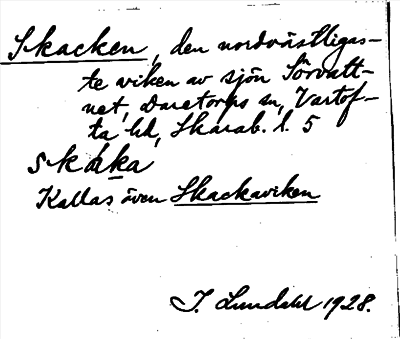 Skacken, den nordvästligas-
te viken av sjön Sörvatt-
net, Daretorps sn, Vartof-
ta hd, Skarab. l. 5
skaka
Kallas även Skackaviken
I. Lundahl 1928.